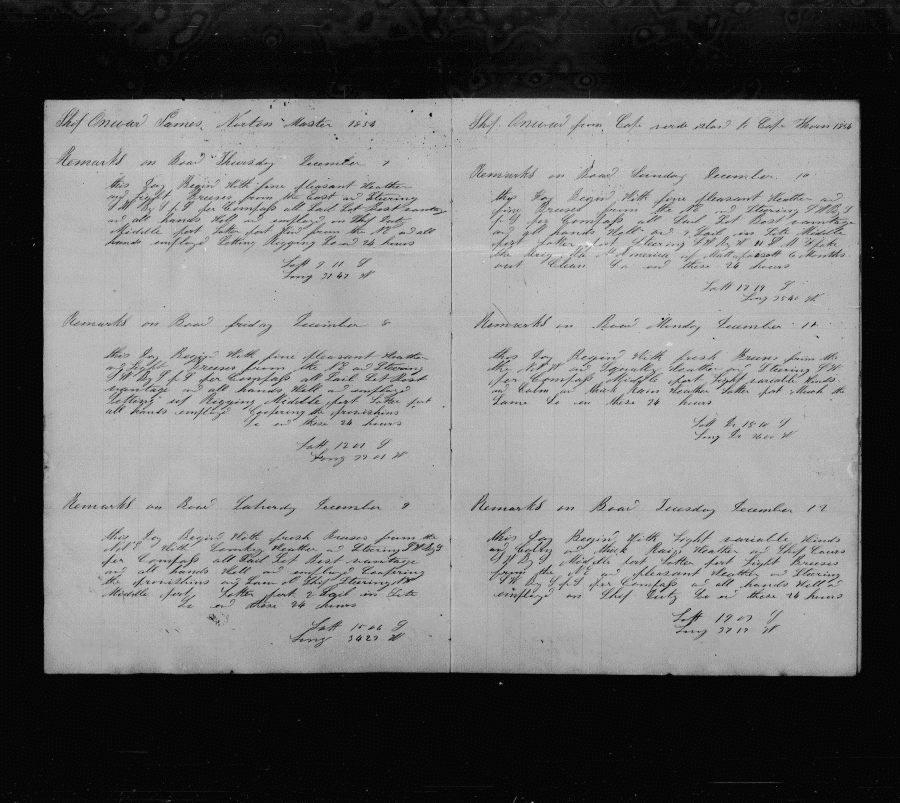 Ship Onward James Norton Master 1854
Remarks on Board Thursday December 7
this Day Begins With fine pleasant Weather
and Light Breeses from the East and Stearing
S W By S per Compass all Sail Set Best vantage
and all hands Well and employed on Ships Duty
Middle part Latter part Wind from the NE and all
hands employed Setting Rigging So end 24 hours
Latt 9 11 S
Long 31 47 W
Remarks on Board friday December 8
this Day Begins With fine pleasant Weather
and Light Breeses from the NE and Stearing
S W By S per Compass all Sail Set Best
vantage and all hands Well and employed
Setting up Rigging Middle part Latter part
all hands employed Coopering the provishins
So end these 24 hours
Latt 12 01 S
Long 33 01 W
Remarks on Board Saturday December 9
this Day Begins With fresh Breeses from the
With Smokey Weather and Stearing S W By S
per Compass all Sail Set Best vantage
and all hands Well and employed Coopering
the provishins and Ship Stearing
Middle part Latter part 2 Sail in Site
So end these 24 hours
Latt 15 06 S
Long 34 23 W
Ship Onward from Cape verde island to Cape Horn 1854
Remarks on Board Sunday December 10
this Day Begins With fine pleasant Weather and
fine Breeses from the and Stearing S W By S
per Compass all Sail Set Best vantage
and all hands Well and 2 Sail in Site Middle
part Latter part Stearing S W By W
the America of Mattapoisett 6 Months
out Clean So end these 24 hours
Latt 17 19 S
Long 35 41 W
Remarks on Board Monday December 11
this Day Begins With fresh Breeses from the
the and Squally Weather and Stearing S W
per Compass Middle part Light variable Winds
and Calm and thick Rain Weather Latter part Much the
Same So end these 24 hours
Latt Dr 18 10 S
Long Dr 36 00 W
Remarks on Board Tuesday December 12
this Day Begins With Light variable Winds
and Calm and thick Rain Weather and Ship Course
S W By S Middle part Latter part Light Breeses
from the and pleasant Weather and Stearing
S W By S per Compass and all hands Well and
employed on Ships Duty So end these 24 hours
Latt 19 07 S
Long 37 17 W